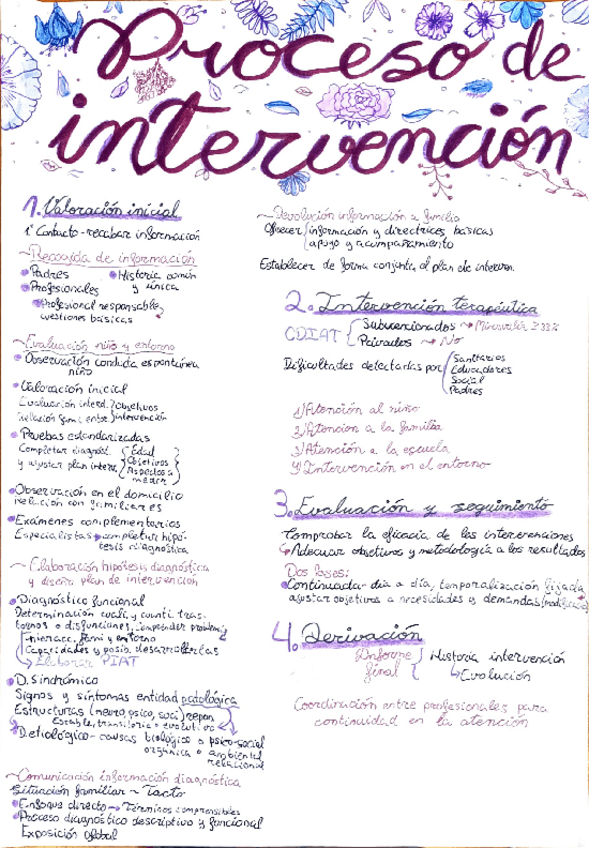 Proceso de
intervención
1. Valoración inicial
1º Contacto - recabar información
~ Recogida de información
Padres
Profesionales
Profesional responsable,
cuestiones básicas
Historia común
y única
~ Evaluación niño y entorno
Observación conducta espontánea
niño
Valoración inicial
Evaluación interd.
Relación fami. entor.
Objetivos
intervención
Pruebas estandarizadas
Completar diagnóst.
y ajustar plan interv.
Edad
Objetivos
Aspectos a
medir
Observación en el domicilio
relación con familiares
Exámenes complementarios
Especialistas → completar hipó-
tesis diagnóstica
~ Elaboración hipótesis diagnóstica
y diseño plan de intervención
Diagnóstico funcional
Determinación cuali. y cuanti. tras-
tornos o disfunciones.
Interacc. fami y entorno
Capacidades y posib. desarrollarlas
→ Elaborar PIAT
D. sindrómico
Signos y síntomas entidad patológica
Estructuras (neuro, psico, soci)
Estable, transitorio o evolutivo
D. etiológico - causas biológico o psico-social
orgánica o ambiental
relacional
~ Comunicación información diagnóstica
Situación familiar ~ Tacto
Enfoque directo → Términos comprensibles
Proceso diagnóstico descriptivo y funcional
Exposición global
~ Devolución información a familia
Ofrecer
información y directrices básicas
apoyo y acompañamiento
Establecer de forma conjunta el plan de interven.
2. Intervención terapéutica
CDIAT
Subvencionados → Minusvalía ≥33%
Privados → No
Dificultades detectadas por
Sanitarios
Educadores
Social
Padres
1) Atención al niño
2) Atención a la familia
3) Atención a la escuela
4) Intervención en el entorno
3. Evaluación y seguimiento
Comprobar la eficacia de las intervenciones
→ Adecuar objetivos y metodología a los resultados
Dos fases:
Continuada - día a día, temporalización fijada
ajustar objetivos a necesidades y demandas
4. Derivación
Informe
final
Historia intervención
→ Evolución
Coordinación entre profesionales para
continuidad en la atención